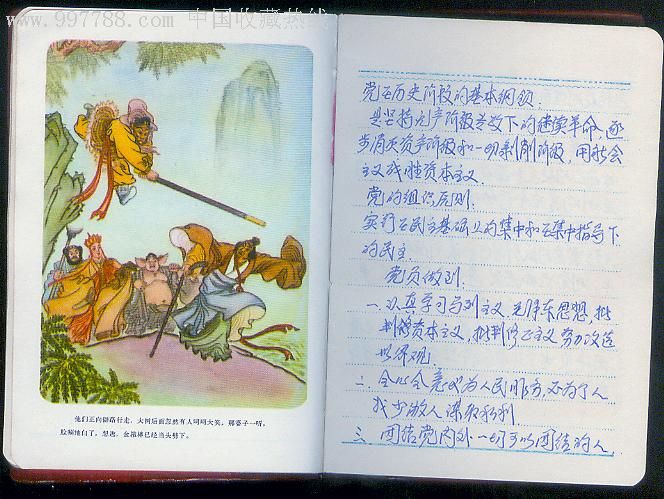 www.997788.com 中国收藏热线
他们正向僻路行走，大树后面忽然有人呵呵大笑。那婆子一听，
脸唰地白了。想逃，金箍棒已经当头劈下。
党在历史阶段的基本纲领.
是坚持无产阶级专政下的继续革命，逐
步消灭资产阶级和一切剥削阶级，用社会
主义战胜资本主义.
党的组织原则:
实行在民主基础上的集中和在集中指导下
的民主.
党员做到.
一.认真学习马列主义、毛泽东思想，批
判资本主义，批判修正主义努力改造
世界观.
二.全心全意为人民服务，不为个人
或少数人谋取私利
三.团结党内外一切可以团结的人.